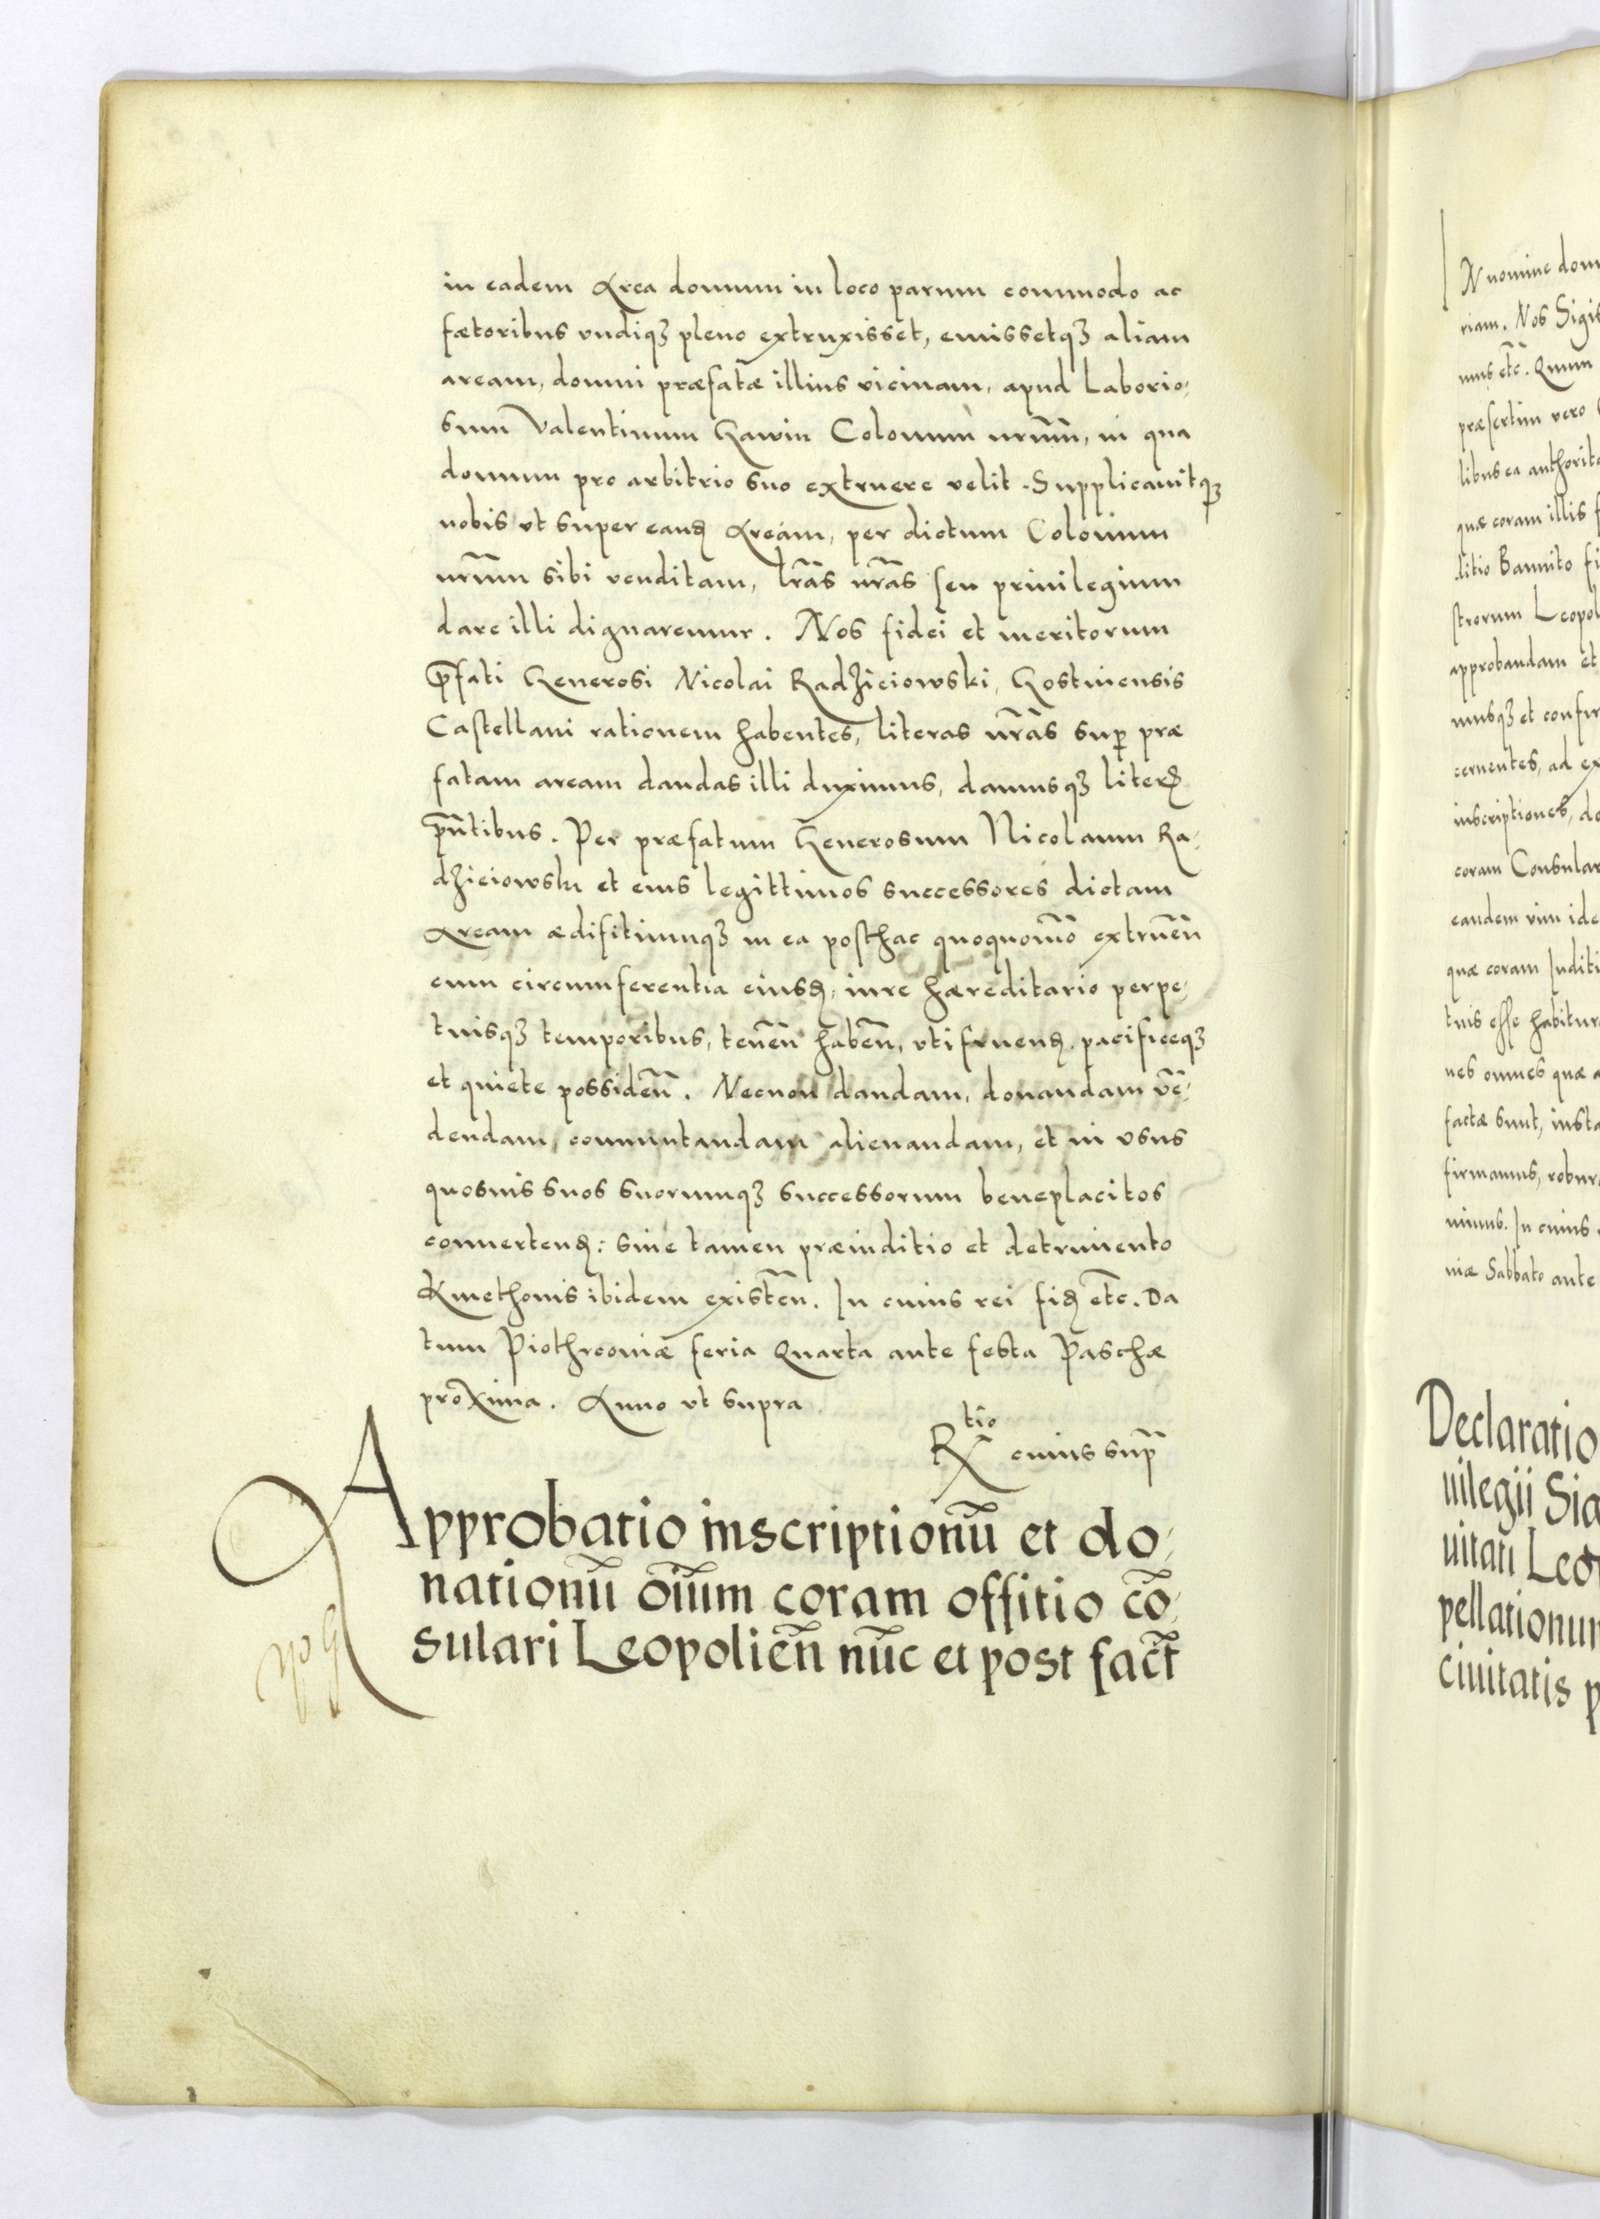 in eadem Area domum in loco parum commodo ac
fætoribus vndiqꝫ pleno extruxisset, emissetqꝫ aliam
aream, domui præfatæ illius vicinam, apud Laborio,
sum Valentinum Gawin Colonum nr̃um, in qua
domum pro arbitrio suo extruere velit. Supplicauitqꝫ
nobis vt super eand̨ Aream, per dictum Colonum
nr̃um sibi venditam, lr̃as nr̃as seu priuilegium
dare illi dignaremur. Nos fidei et meritorum
p̃fati Generosi Nicolai Radziciowski, Gostinensis
Castellani rationem habentes, literas nr̃as sup̱ præ
fatam aream dandas illi duximus, damusqꝫ literꝭ
p̃ntibus. Per præfatum Generosum Nicolaum Ra,
dziciowski et eius legittimos successores dictam
Aream ædifitiumqꝫ in ea posthac quoquomõ extruen̄
cum circumferentia eiusd̨, iure hæreditario perpe,
tuisqꝫ temporibus, tenen̄ haben̄, vtifruend̨. pacificeqꝫ
et quiete possiden̄. Necnon dandam, donandam vẽ,
dendam, commutandam alienandam, et in vsus
quosuis suos suorumqꝫ successorum beneplacitos
conuertend̨: sine tamen præiuditio et detrimento
Kmethonis ibidem existen̄. In cuius rei fid̨ etc̄. Da
tum Piothrcouiæ feria Quarta ante festa Paschæ
proxima. Anno vt supra
R<sup>tio</sup> cuius sup̃
Approbatio inscriptionũ et do,
nationũ oĩum coram offitio cõ,
sulari Leopolien̄ nũc et post fact̄
N nomine dom
riam. Nos Sigis
mus etc̄. Quum
præsertim vero
libus ea authorita
quæ coram illis f
ditio Bannito fi
strorum Leopol
approbandam et
musqꝫ et confir
cernentes, ad ex
inscriptiones, do
coram Consular
eandem vim ide
quæ coram Juditi
tuis esse habitur
nes omnes quæ a
factæ sunt, insta
firmamus, robur
nimus. In cuius
niæ Sabbato ante
Declaratio
uilegii Sig
uitati Leo
pellationum
ciuitatis p